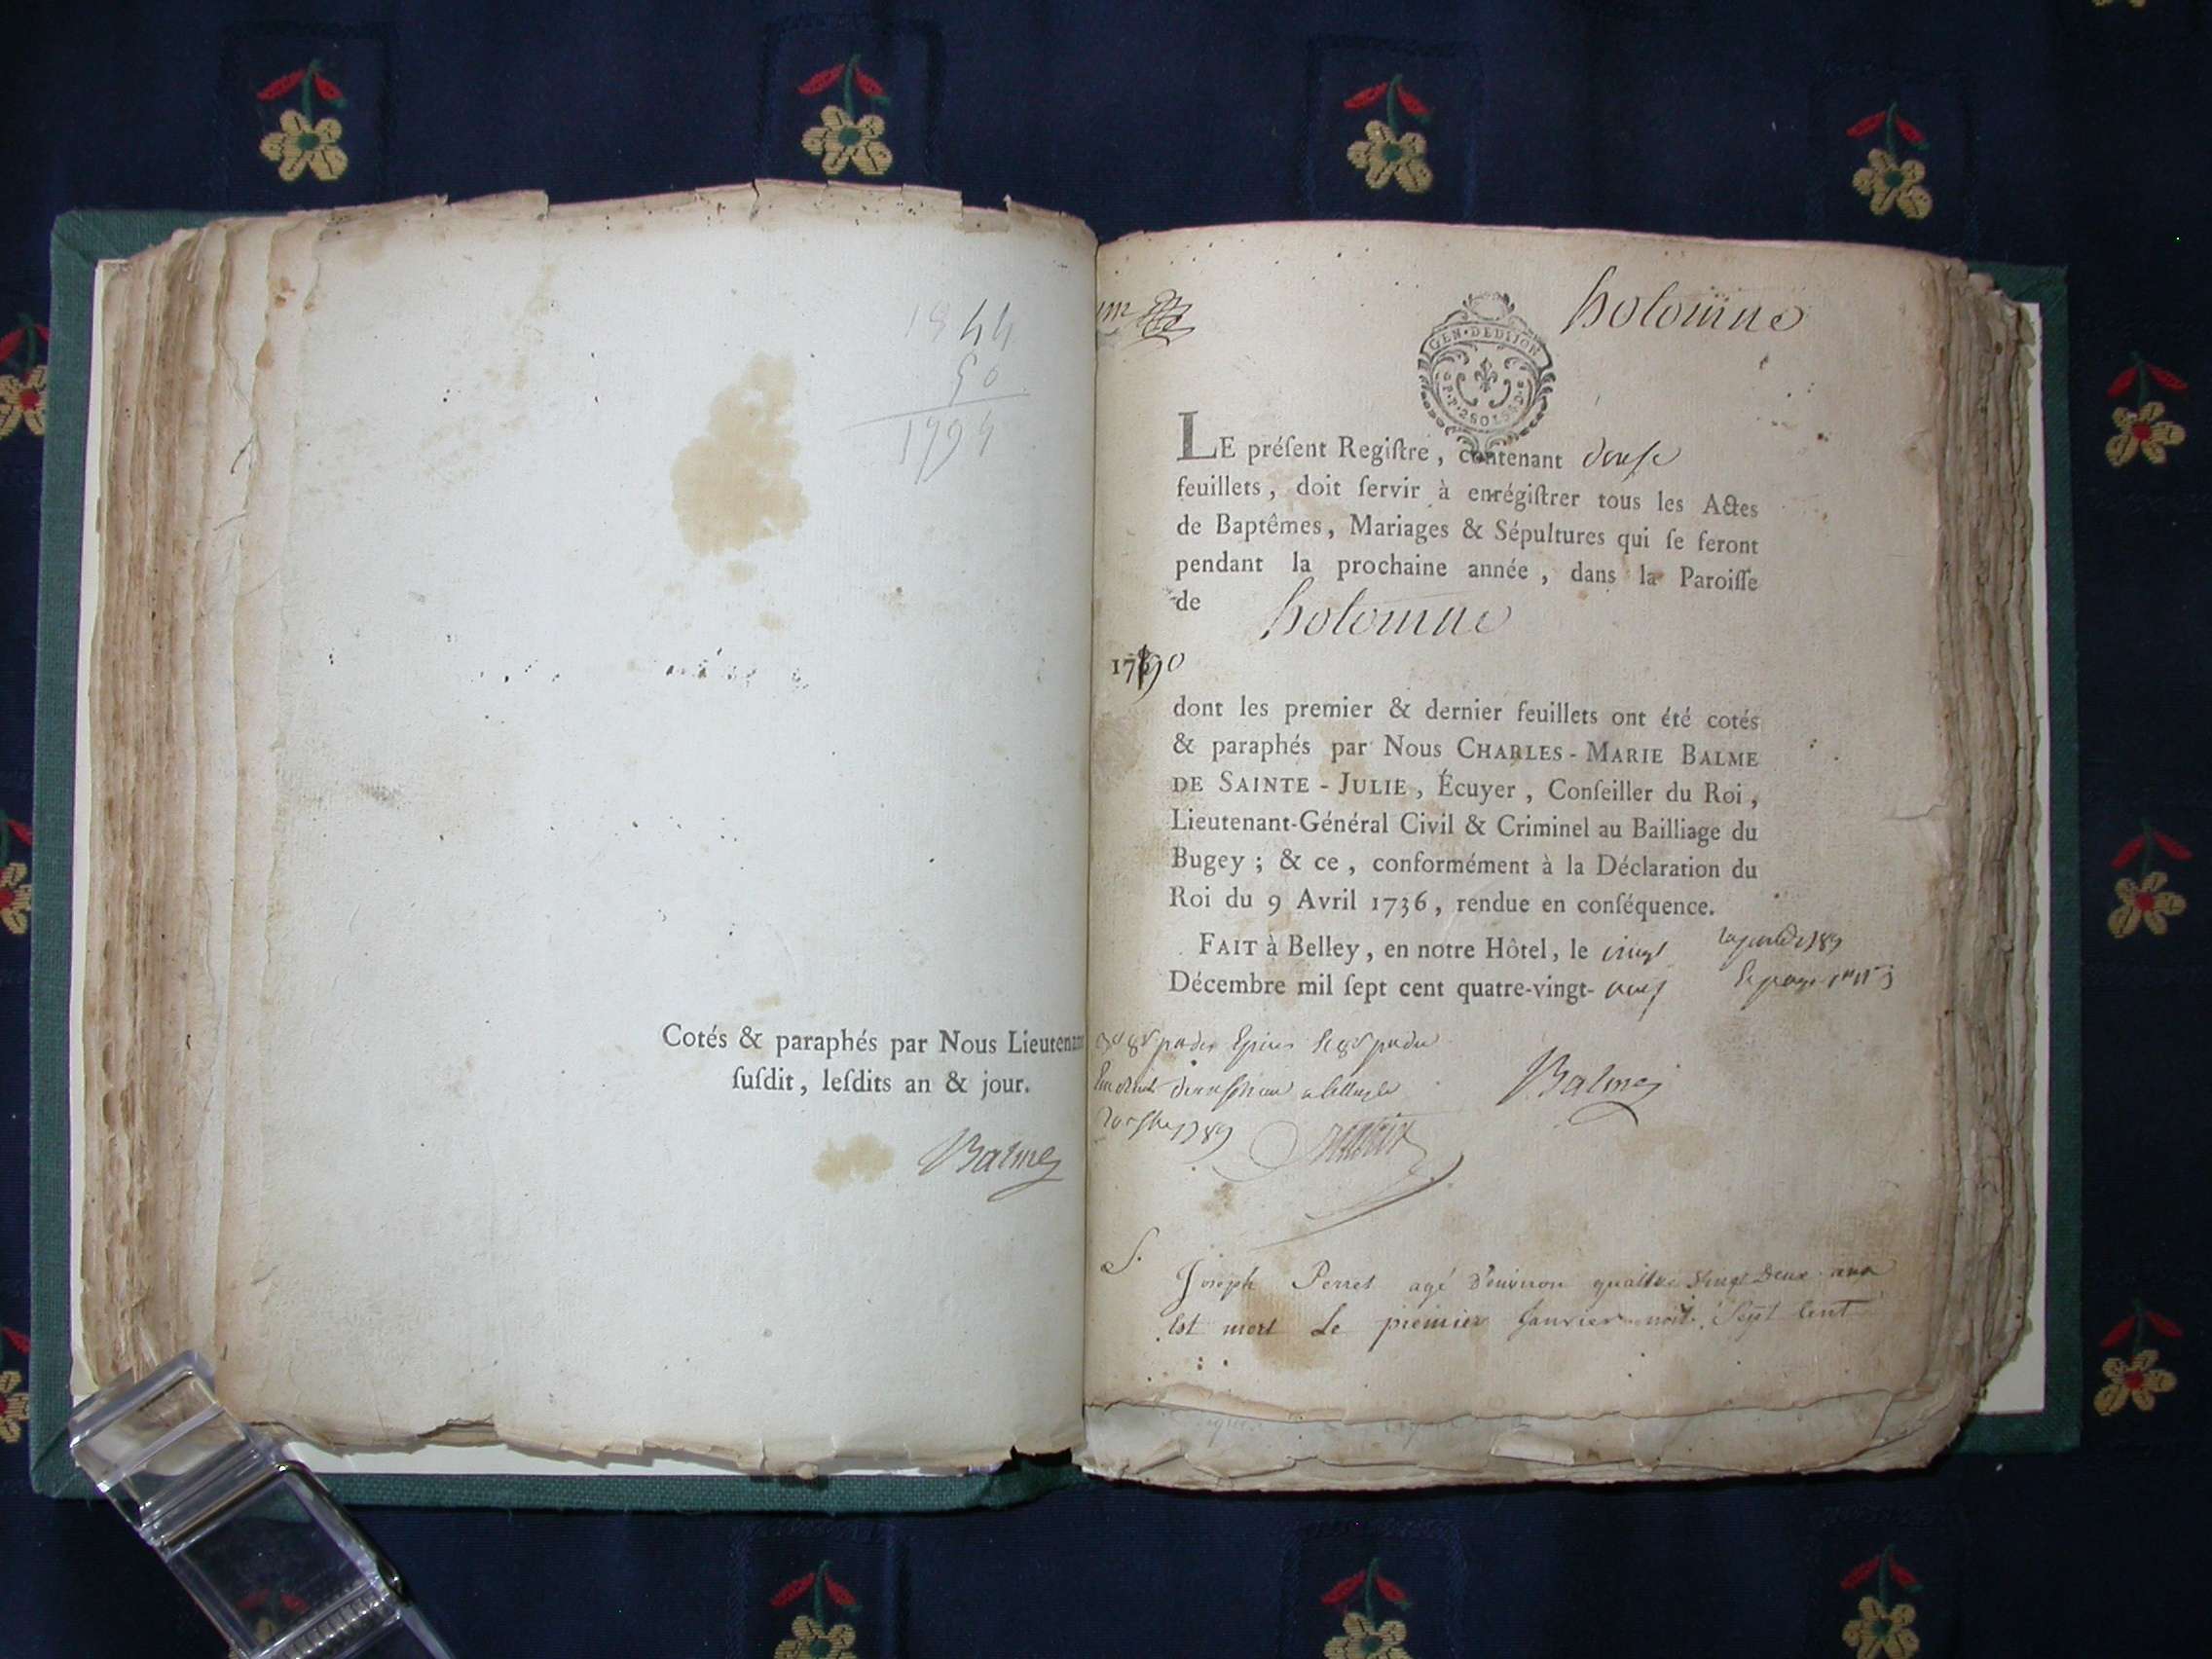 1844
50
1794
Cotés & paraphés par Nous Lieutenant
ſuſdit, leſdits an & jour.
Balme
holonne
GEN·DEDIJON
LE préſent Regiſtre, contenant douſe
feuillets, doit ſervir à enrégiſtrer tous les Actes
de Baptêmes, Mariages & Sépultures qui ſe feront
pendant la prochaine année, dans la Paroiſſe
de holonne
1790
dont les premier & dernier feuillets ont été cotés
& paraphés par Nous CHARLES-MARIE BALME
DE SAINTE-JULIE, Écuyer, Conſeiller du Roi,
Lieutenant-Général Civil & Criminel au Bailliage du
Bugey; & ce, conformément à la Déclaration du
Roi du 9 Avril 1736, rendue en conſéquence.
FAIT à Belley, en notre Hôtel, le vingt
Décembre mil ſept cent quatre-vingt- neuf
1789
Balme
S.
Joseph Perret agé d'environ quattre vingt Deux ans
Est mort le premier Janvier mil Sept Cent